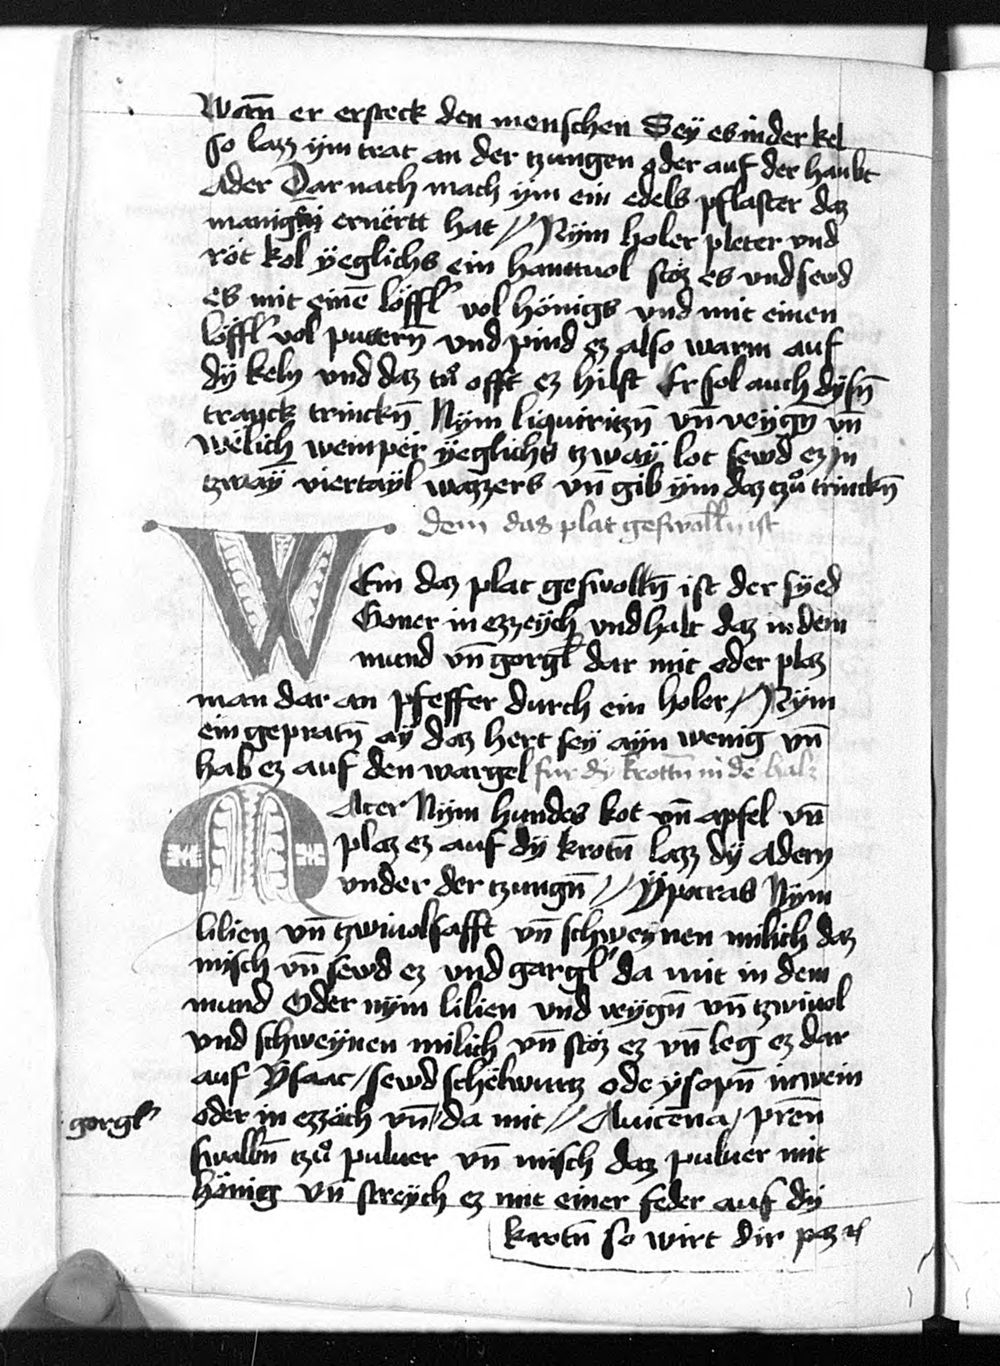 Wann er ersteck den menschen Sey es in der kel
so lazz ÿm trat an der tzungen oder auf der haubt
Ader Dar nach mach ÿm ein edels pflaster daz
ernërtt hat // Nÿm holer pleter vnd
röt köl ÿeglichs ein hanttuol stöz es vnd sewd
es mit einē löffl vol hönigs vnd mit einen
löffl vol puttern̄ vnd pind ez also warm auf
dÿ keln vnd daz tuͦ offt ez hilft Er sol auch dÿsn̄
tranck trinckn̄ Nÿm liquiritzn̄ vn̄ veÿgn̄ vn̄
welich wemper ÿeglichs tzwaÿ lot sewd ez in
tzwaÿ viertaÿl wazzers vn̄ gib ÿm daz tzuͦ trinckn̄
dem das plat geswolln ist
WEm daz plat geswolln̄ ist der sÿed
in ezzeÿch vnd halt daz in dem
mund vn̄ gorgl dar mit oder plaz
man dar an pfeffer durch ein holer / Nÿm
ein gepratn̄ aÿ daz hert seÿ aÿn wenig vn̄
hab ez auf den wargel für dÿ krottn in dē halz
MAcer Nÿm hundes kot vn̄ apfel vn̄
plaz ez auf dÿ krotn̄ lazz dÿ adern
vnder der tzungn̄ // Ÿpocras Nÿm
lilien vn̄ tzwiuolsafft vn̄ schweÿnen milich daz
misch vn̄ sewd ez vnd gargl da mit in dem
mund Oder nÿm lilien vnd veygn̄ vn̄ tzwiuol
vnd schweÿnen milich vn̄ stöz ez vn̄ leg ez dar
auf Ÿsaac / sewd schëlwurtz ode ÿsopn̄ in wein
oder in ezzäch vn̄ / da mit // Auicēna / pren̄
gorgl
swalbn̄ tzuͦ puluer vn̄ misch daz puluer mit
hönig vn̄ streÿch ez mit einer feder auf dÿ
krotn̄ so wirt dir paz